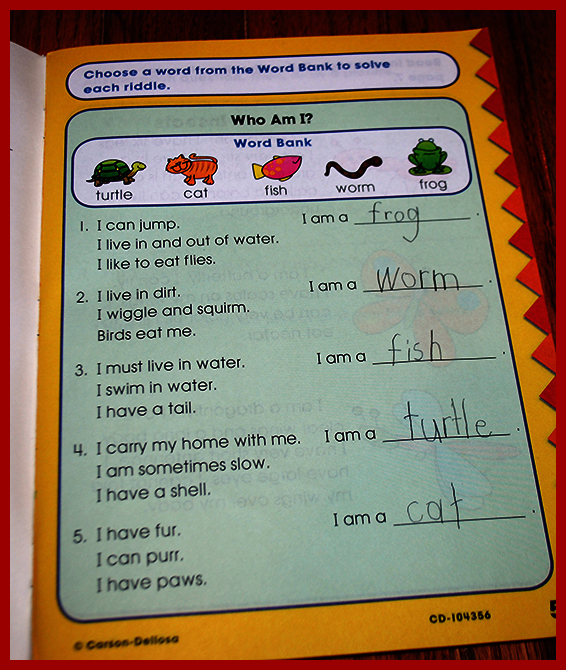 Choose a word from the Word Bank to solve
each riddle.
Who Am I?
Word Bank
turtle cat fish worm frog
1. I can jump. I am a frog.
I live in and out of water.
I like to eat flies.
2. I live in dirt. I am a worm.
I wiggle and squirm.
Birds eat me.
3. I must live in water. I am a fish.
I swim in water.
I have a tail.
4. I carry my home with me. I am a turtle.
I am sometimes slow.
I have a shell.
5. I have fur. I am a cat.
I can purr.
I have paws.
CD-104356
© Carson-Dellosa